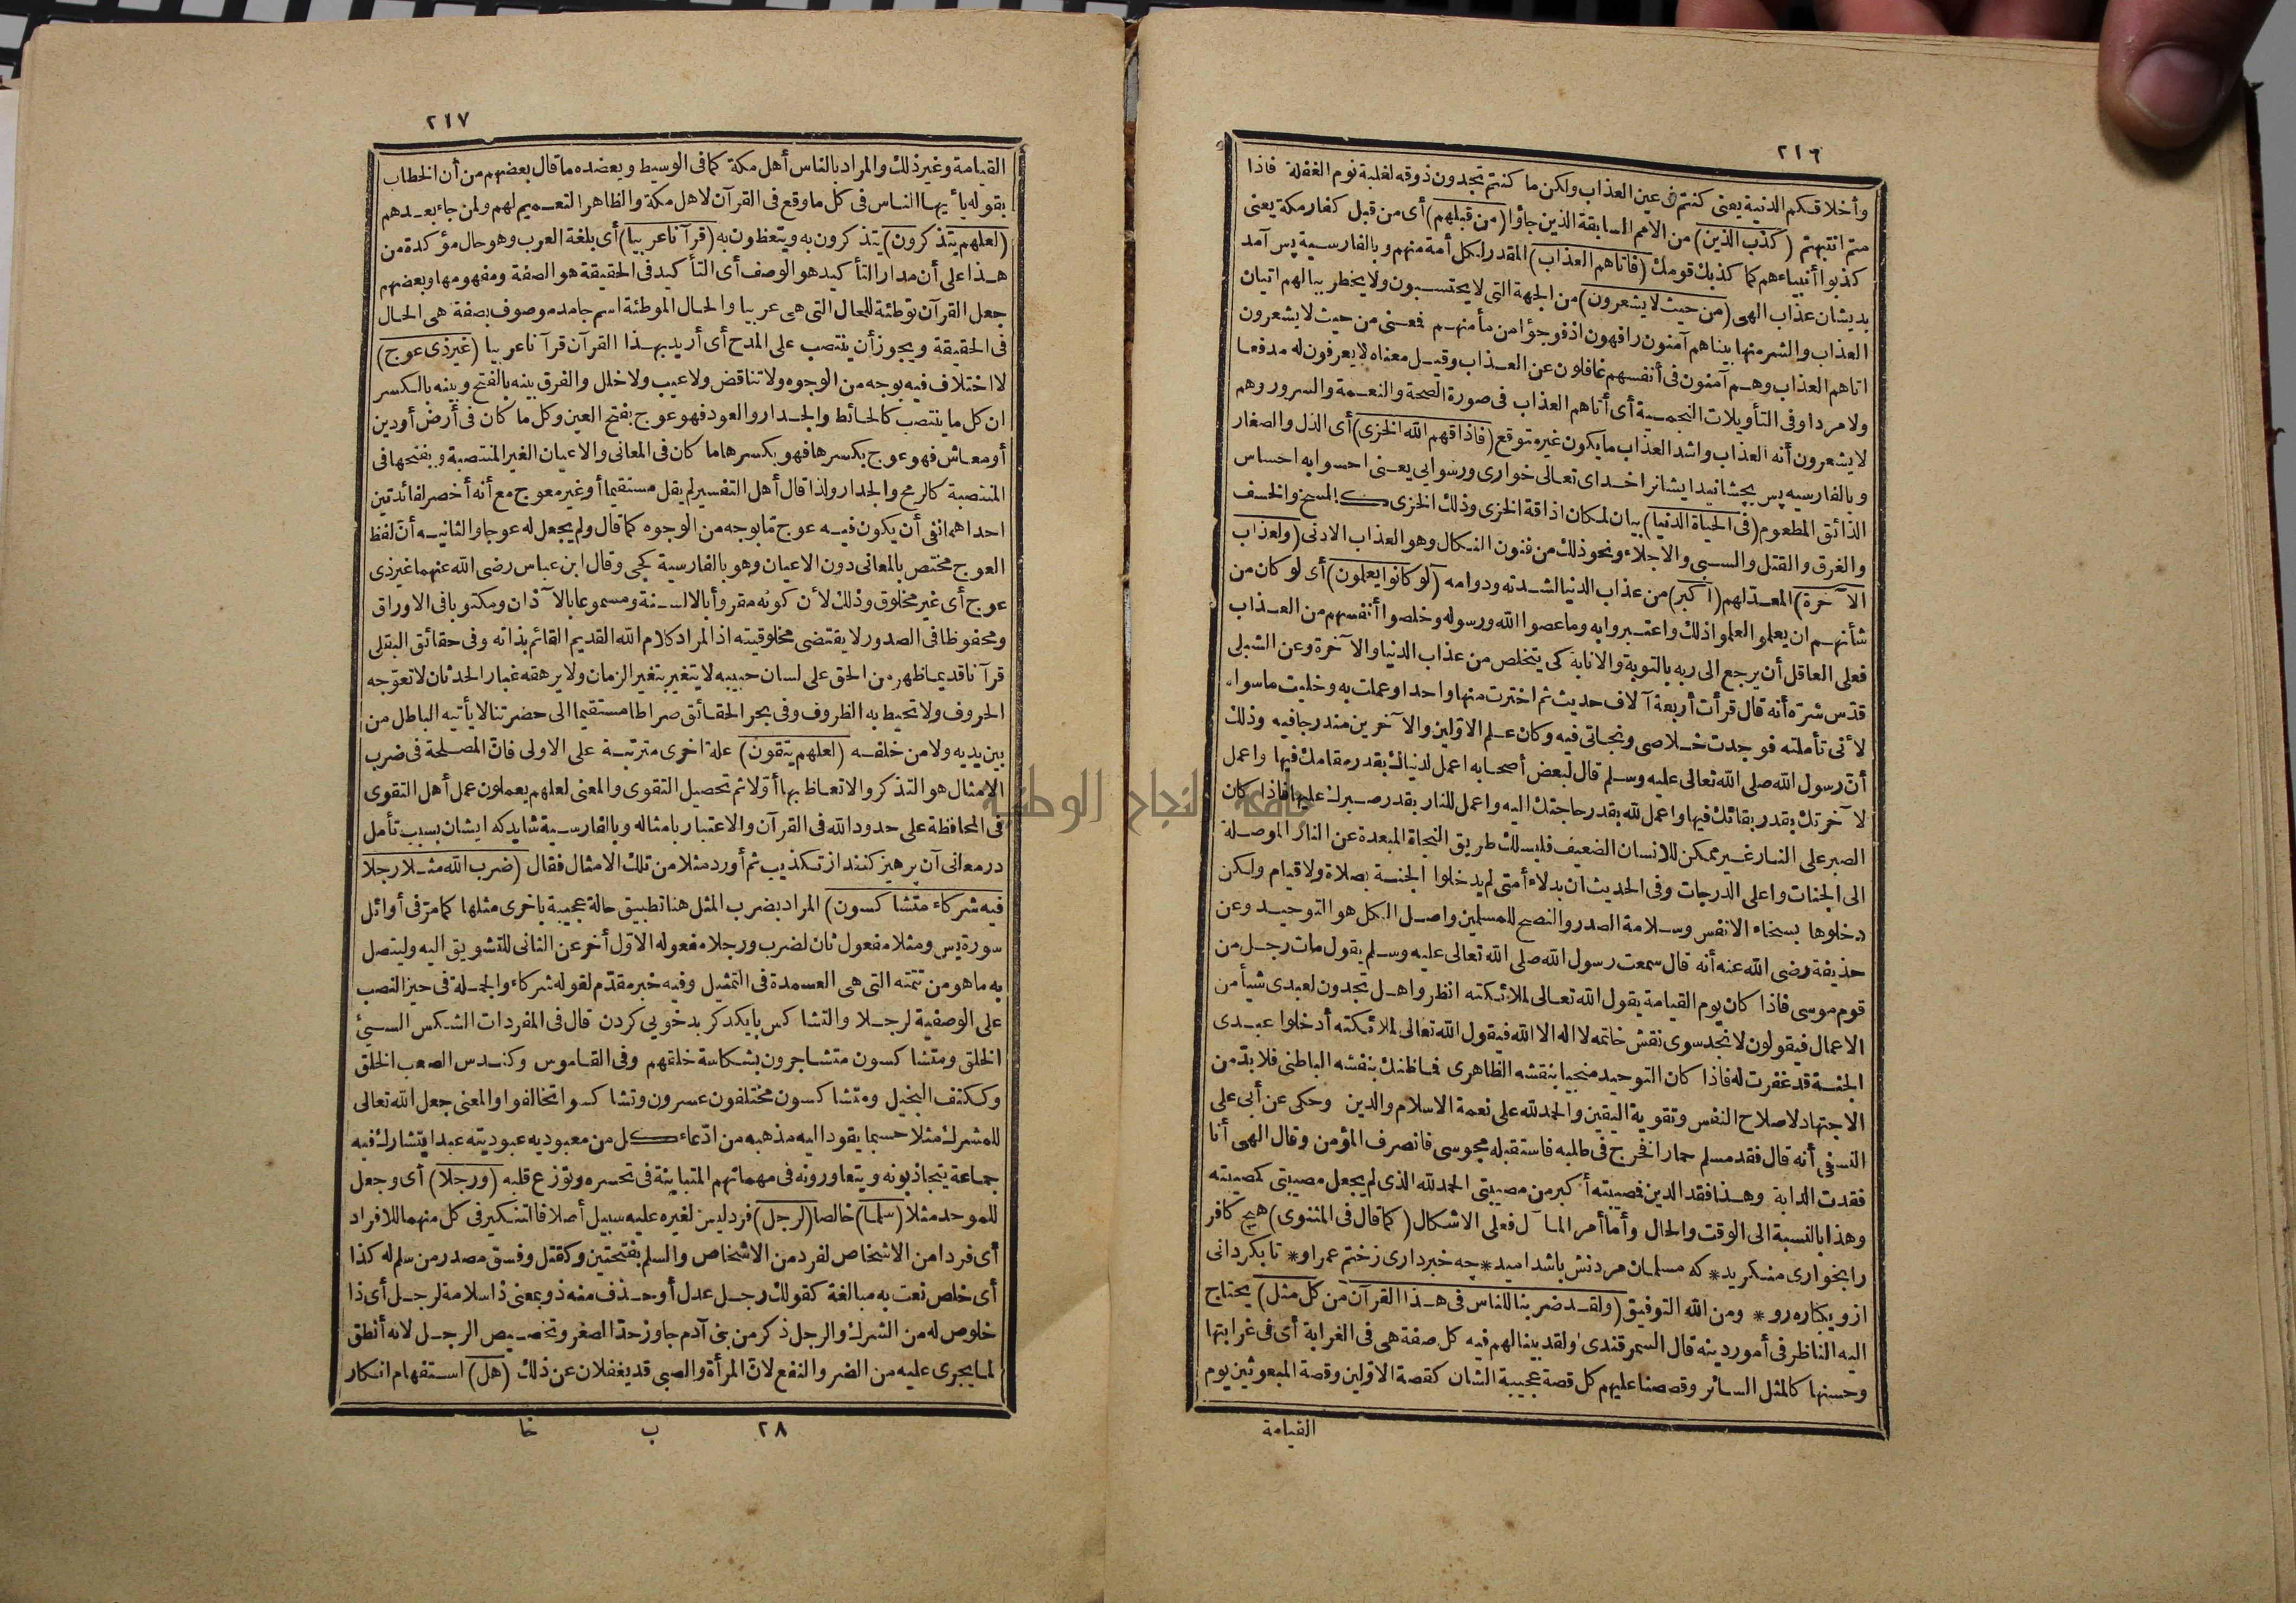 ٢١٦
وأخلاقكم الدنية يعنى كنتم فى عين العذاب ولكن ما كنتم تجدون ذوقه لغلبة نوم الغفلة فاذا
متم انتبهتم (كذب الذين) من الامم السابقة الذين جاؤا (من قبلهم) أى من قبل كفار مكة يعنى
كذبوا أنبياءهم كما كذبك قومك (فأتاهم العذاب) المقدر لكل أمة منهم وبالفارسية پس آمد
بديشان عذاب الهى (من حيث لا يشعرون) من الجهة التى لا يحتسبون ولا يخطر ببالهم اتيان
العذاب والشر منها بيناهم آمنون رافهون اذ فوجؤا من مأمنهم فمعنى من حيث لا يشعرون
اتاهم العذاب وهم آمنون فى أنفسهم غافلون عن العذاب وقيل معناه لا يعرفون له مدفعا
ولا مردا وفى التأويلات النجمية أى أتاهم العذاب فى صورة الصحة والنعمة والسرور وهم
لا يشعرون أنه العذاب واشد العذاب ما يكون غير متوقع (فاذاقهم الله الخزى) أى الذل والصغار
وبالفارسيه پس بچشانيد ايشانرا خداى تعالى خوارى ورسوايى يعنى احسوابه احساس
الذائق المطعوم (فى الحياة الدنيا) بيان لمكان اذاقة الخزى وذلك الخزى كالمسخ والخسف
والغرق والقتل والسبى والاجلاء ونحو ذلك من فنون النكال وهو العذاب الادنى (ولعذاب
الآخرة) المعد لهم (أكبر) من عذاب الدنيا لشدته ودوامه (لو كانوا يعلمون) أى لو كان من
شأنهم ان يعلموا لعلموا ذلك واعتبروا به وما عصوا الله ورسوله وخلصوا أنفسهم من العذاب
فعلى العاقل أن يرجع الى ربه بالتوبة والانابة كى يتخلص من عذاب الدنيا والآخرة وعن الشبلى
قدّس سرّه أنه قال قرأت أربعة آلاف حديث ثم اخترت منها واحدا وعملت به وخليت ما سواه
لأنى تأملته فوجدت خلاصى ونجاتى فيه وكان علم الاوّلين والآخرين مندرجا فيه وذلك
أن رسول الله صلى الله تعالى عليه وسلم قال لبعض أصحابه اعمل لدنياك بقدر مقامك فيها واعمل
لآخرتك بقدر بقائك فيها واعمل لله بقدر حاجتك اليه واعمل للنار بقدر صبرك عليها فاذا كان
الصبر على النار غير ممكن للانسان الضعيف فليسلك طريق النجاة المبعدة عن النار الموصلة
الى الجنات واعلى الدرجات وفى الحديث ان بدلاء أمتى لم يدخلوا الجنة بصلاة ولا قيام ولكن
دخلوها بسخاء الانفس وسلامة الصدر والنصح للمسلمين واصل الكل هو التوحيد وعن
حذيفة رضى الله عنه أنه قال سمعت رسول الله صلى الله تعالى عليه وسلم يقول مات رجل من
قوم موسى فاذا كان يوم القيامة يقول الله تعالى لملائكته انظروا هل تجدون لعبدى شيأ من
الاعمال فيقولون لا نجد سوى نقش خاتمه لا اله الا الله فيقول الله تعالى لملائكته أدخلوا عبدى
الجنة قد غفرت له فاذا كان التوحيد منجيا بنقشه الظاهرى فما ظنك بنقشه الباطنى فلا بدّ من
الاجتهاد لاصلاح النفس وتقوية اليقين والحمد لله على نعمة الاسلام والدين وحكى عن أبى على
النسفى أنه قال فقد مسلم حمارا فخرج فى طلبه فاستقبله مجوسى فانصرف المؤمن وقال الهى أنا
فقدت الدابة وهذا فقد الدين فصيبته أكبر من مصيبتى الحمد لله الذى لم يجعل مصيبتى كمصيبته
وهذا بالنسبة الى الوقت والحال وأما أمر المآل فعلى الاشكال (كما قال فى المثنوى) هيچ كافر
را بخوارى منكريد * كه مسلمان مردنش باشد اميد * چه خبردارى زختم عمر او * تا بكردانى
ازو يكباره رو * ومن الله التوفيق (ولقد ضربنا للناس فى هذا القرآن من كل مثل) يحتاج
اليه الناظر فى أمور دينه قال السمرقندى ولقد بينا لهم فيه كل صفة هى فى الغرابة أى فى غرابتها
وحسنها كالمثل السائر وقصصنا عليهم كل قصة عجيبة الشان كقصة الاوّلين وقصة المبعوثين يوم
القيامة
٢١٧
القيامة وغير ذلك والمراد بالناس أهل مكة كما فى الوسيط ويعضده ما قال بعضهم من أن الخطاب
بقوله يا أيها الناس فى كل ما وقع فى القرآن لاهل مكة والظاهر التعميم لهم ولمن جاء بعدهم
(لعلهم يتذكرون) يتذكرون به ويتعظون به (قرآنا عربيا) أى بلغة العرب وهو حال مؤكدة من
هذا على أن مدار التأكيد هو الوصف أى التأكيد فى الحقيقة هو الصفة ومفهومها وبعضهم
جعل القرآن توطئة للحال التى هى عربيا والحال الموطئة اسم جامد موصوف بصفة هى الحال
فى الحقيقة ويجوز أن ينتصب على المدح أى أريد بهذا القرآن قرآنا عربيا (غير ذى عوج)
لا اختلاف فيه بوجه من الوجوه ولا تناقض ولا عيب ولا خلل والفرق بينه بالفتح وبينه بالكسر
ان كل ما ينتصب كالحائط والجدار والعود فهو عوج بفتح العين وكل ما كان فى أرض أو دين
أو معاش فهو عوج بكسرها فهو بكسرها ما كان فى المعانى والاعيان الغير المنتصبة وبفتحها فى
المنتصبة كالرمح والجدار ولذا قال أهل التفسير لم يقل مستقيما أو غير معوج مع أنه أخصر لفائدتين
احداهما نفى أن يكون فيه عوج ما بوجه من الوجوه كما قال ولم يجعل له عوجا والثانيه أن لفظ
العوج مختص بالمعانى دون الاعيان وهو بالفارسية كجى وقال ابن عباس رضى الله عنهما غير ذى
عوج أى غير مخلوق وذلك لأن كونه مقروأ بالالسنة ومسموعا بالآذان ومكتوبا فى الاوراق
ومحفوظا فى الصدور لا يقتضى مخلوقيته اذ المراد كلام الله القديم القائم بذاته وفى حقائق البقلى
قرآنا قديما ظهر من الحق على لسان حبيبه لا يتغير بتغير الزمان ولا يرهقه غبار الحدثان لا تعوّجه
الحروف ولا تحيط به الظروف وفى بحر الحقائق صراطا مستقيما الى حضرتنا لا يأتيه الباطل من
بين يديه ولا من خلفه (لعلهم يتقون) علة اخرى مترتبة على الاولى فان المصلحة فى ضرب
الامثال هو التذكر والاتعاظ بها أوّلا ثم تحصيل التقوى والمعنى لعلهم يعملون عمل أهل التقوى
فى المحافظة على حدود الله فى القرآن والاعتبار بامثاله وبالفارسية شايد كه ايشان بسبب تأمل
در معانى آن پرهيز كنند از تكذيب ثم أورد مثلا من تلك الامثال فقال (ضرب الله مثلا رجلا
فيه شركاء متشاكسون) المراد بضرب المثل هنا تطبيق حالة عجيبة باخرى مثلها كما مرّ فى أوائل
سورة يس ومثلا مفعول ثان لضرب ورجلا مفعوله الاوّل أخر عن الثانى للتشويق اليه وليتصل
به ما هو من تتمته التى هى العمدة فى التمثيل وفيه خبر مقدّم لقوله شركاء والجملة فى حيز النصب
على الوصفية لرجلا والتشاكس با يكدكر بدخويى كردن قال فى المفردات الشكس السيئ
الخلق ومتشاكسون متشاجرون بشكاسة خلقهم وفى القاموس وكندس الصعب الخلق
وككتف البخيل ومتشاكسون مختلفون عسرون وتشاكسوا تخالفوا والمعنى جعل الله تعالى
للمشرك مثلا حسبما يقود اليه مذهبه من ادّعاء كل من معبوديه عبوديته عبدا يتشارك فيه
جماعة يتجاذبونه ويتعاورونه فى مهماتهم المتباينة فى تحسره وتوزع قلبه (ورجلا) أى وجعل
للموحد مثلا (سلما) خالصا (لرجل) فرد ليس لغيره عليه سبيل أصلا فالتنكير فى كل منهما للافراد
أى فردا من الاشخاص لفرد من الاشخاص والسلم بفتحتين وكقتل وفسق مصدر من سلم له كذا
أى خلص نعت به مبالغة كقولك رجل عدل أو حذف منه ذو بمعنى ذا سلامة لرجل أى ذا
خلوص له من الشرك والرجل ذكر من بنى آدم جاوز حدّ الصغر وتخصيص الرجل لانه أنطق
لما يجرى عليه من الضر والنفع لان المرأة والصبى قد يغفلان عن ذلك (هل) استفهام انكار
٢٨ ب خا
جامعة النجاح الوطنية